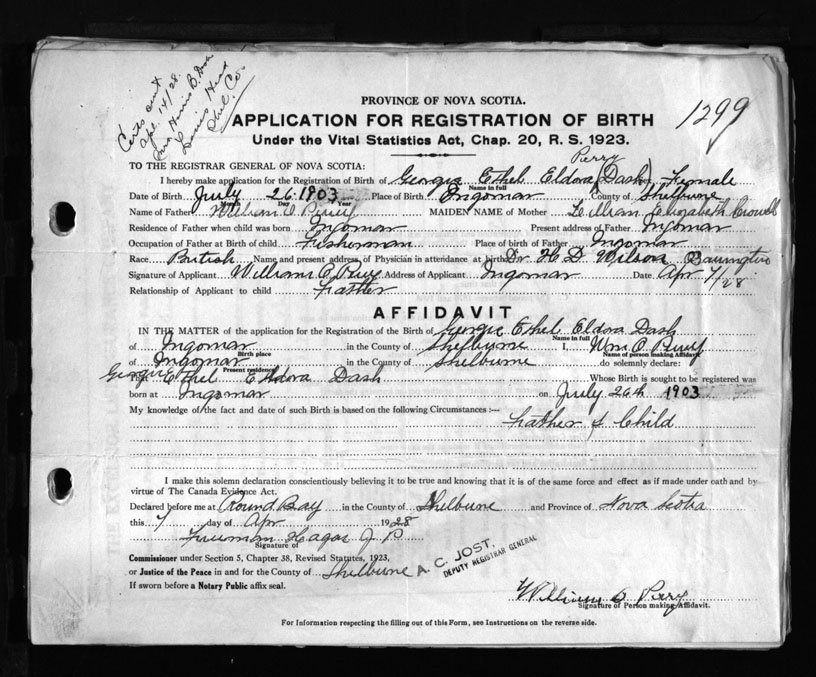 Certs sent
Apl 14/28.
Mrs Harris B. Dash
Louis Head
Shel. Co.
PROVINCE OF NOVA SCOTIA.
APPLICATION FOR REGISTRATION OF BIRTH
1299
Under the Vital Statistics Act, Chap. 20, R. S. 1923.
TO THE REGISTRAR GENERAL OF NOVA SCOTIA:
Perry
I hereby make application for the Registration of Birth of Georgie Ethel Eldora (Dash) Female
Name in full
Date of Birth July 26 1903 Place of Birth Ingomar County of Shelburne
Month Day Year
Name of Father William O Perry MAIDEN NAME of Mother Lillian Elizabeth Crowell
Residence of Father when child was born Ingomar Present address of Father Ingomar
Occupation of Father at Birth of child Fisherman Place of birth of Father Ingomar
Race British Name and present address of Physician in attendance at birth Dr H. D Wilson Barrington
Signature of Applicant William O Perry Address of Applicant Ingomar Date Apr 7/28
Relationship of Applicant to child Father
AFFIDAVIT
IN THE MATTER of the application for the Registration of the Birth of Georgie Ethel Eldora Dash
Name in full
of Ingomar in the County of Shelburne I, Wm O Perry
Birth place Name of person making Affidavit
of Ingomar in the County of Shelburne do solemnly declare:
Present residence
That Georgie Ethel Eldora Dash Whose Birth is sought to be registered was
born at Ingomar on July 26th 1903
My knowledge of the fact and date of such Birth is based on the following Circumstances :—
Father of Child
I make this solemn declaration conscientiously believing it to be true and knowing that it is of the same force and effect as if made under oath and by
virtue of The Canada Evidence Act.
Declared before me at Round Bay in the County of Shelburne and Province of Nova Scotia
this 7 day of Apr 1928
Freeman Hagar J. P
Signature of
Commissioner under Section 5, Chapter 38, Revised Statutes, 1923,
or Justice of the Peace in and for the County of Shelburne
A. C. JOST,
DEPUTY REGISTRAR GENERAL
If sworn before a Notary Public affix seal.
William O Perry
Signature of Person making Affidavit.
For Information respecting the filling out of this Form, see Instructions on the reverse side.